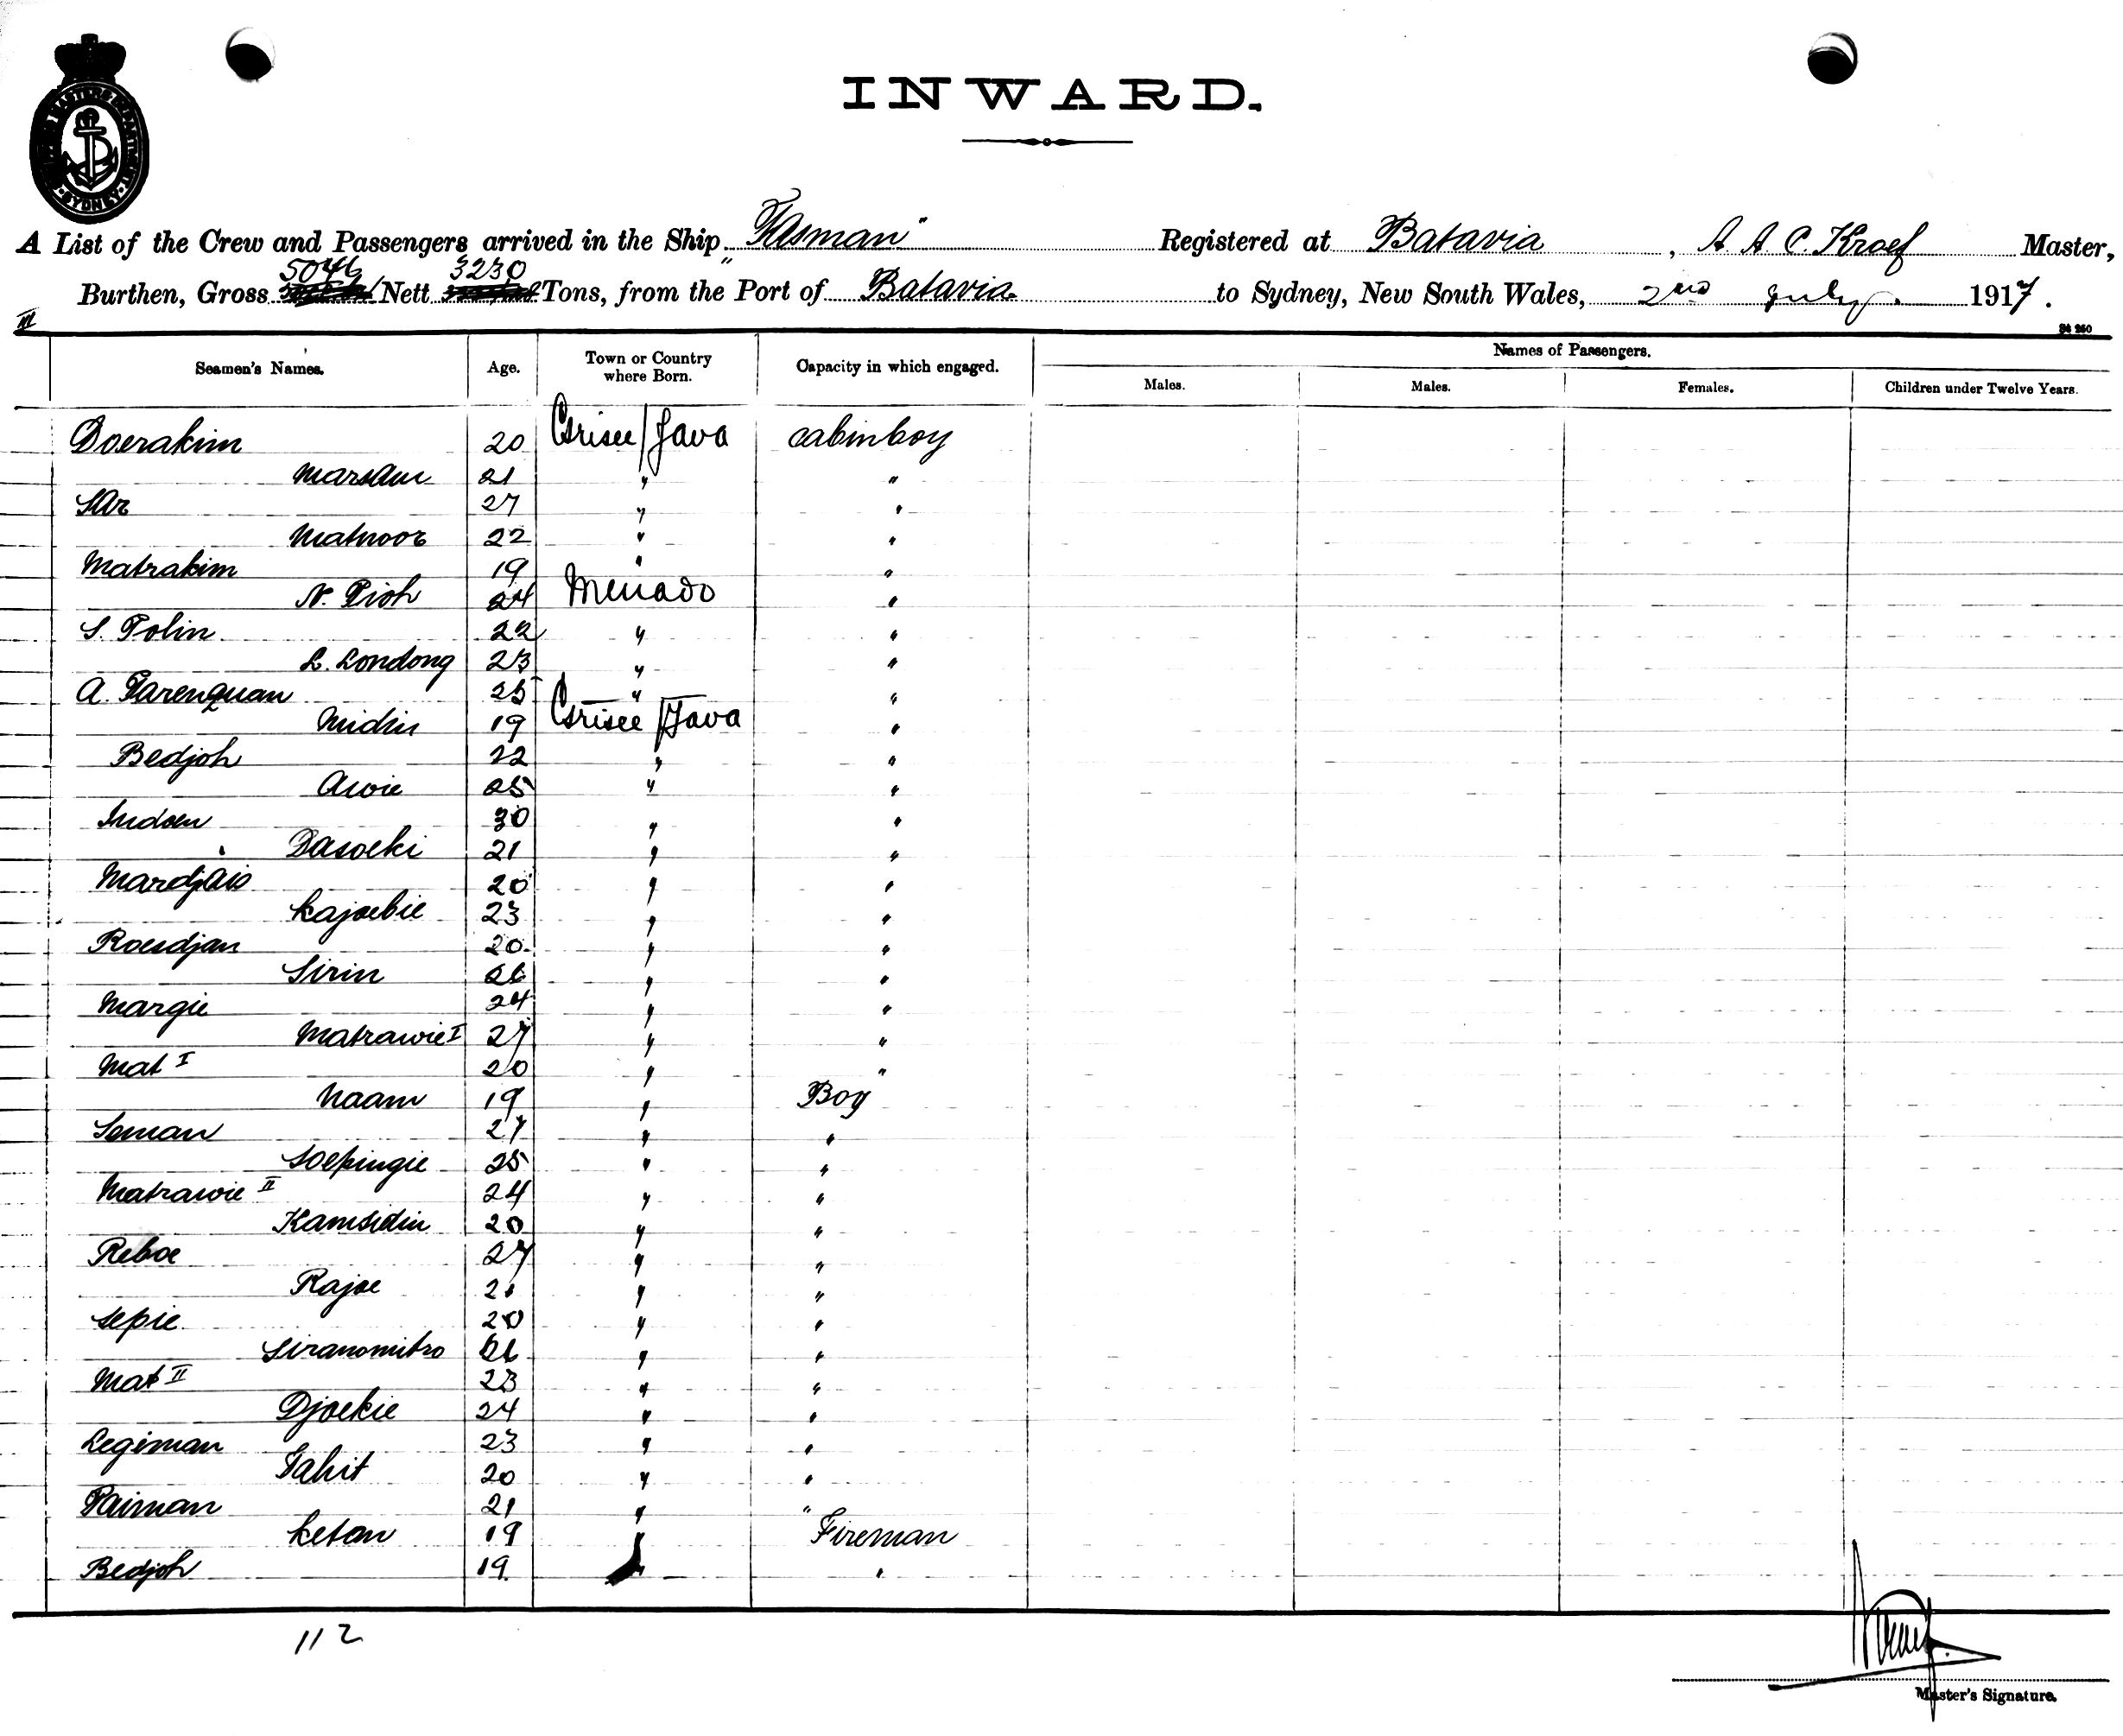 SHIPPING MASTERS DEPARTMENT · SYDNEY ·
INWARD.
A List of the Crew and Passengers arrived in the Ship „Tasman" Registered at Batavia, A. A. C. Kroef Master,
5046 3230
Burthen, Gross Nett Tons, from the Port of Batavia to Sydney, New South Wales, 2nd July. 1917.
III
St 250
Seamen's Names. Age. Town or Country where Born. Capacity in which engaged. Names of Passengers.
Males. Males. Females. Children under Twelve Years.
Doerakim 20 Grisee/Java cabinboy
Marsam 21 " "
Sar 27 " "
Matnoor 22 " "
Matrakim 19 " "
N. Pioh 24 Menado "
S. Polin 22 " "
L. Londong 23 " "
A. Parenquan 25 " "
Midin 19 Grisee/Java "
Bedjoh 22 " "
Awie 25 " "
Indoen 30 " "
Dasoeki 21 " "
Mardjais 20 " "
Kajoebie 23 " "
Roesdjan 20 " "
Sirin 26 " "
Margie 24 " "
Matrawie I 27 " "
Mat I 20 " "
Naam 19 " Boy
Seman 27 " "
Soepingie 25 " "
Matrawie II 24 " "
Kamsidin 20 " "
Reboe 27 " "
Rajoe 21 " "
Sepie 20 " "
Siranomitro 26 " "
Mat II 23 " "
Djoekie 24 " "
Legiman 23 " "
Sahit 20 " "
Paiman 21 " "
Ketan 19 " Fireman
Bedjoh 19 "
112
Master's Signature.